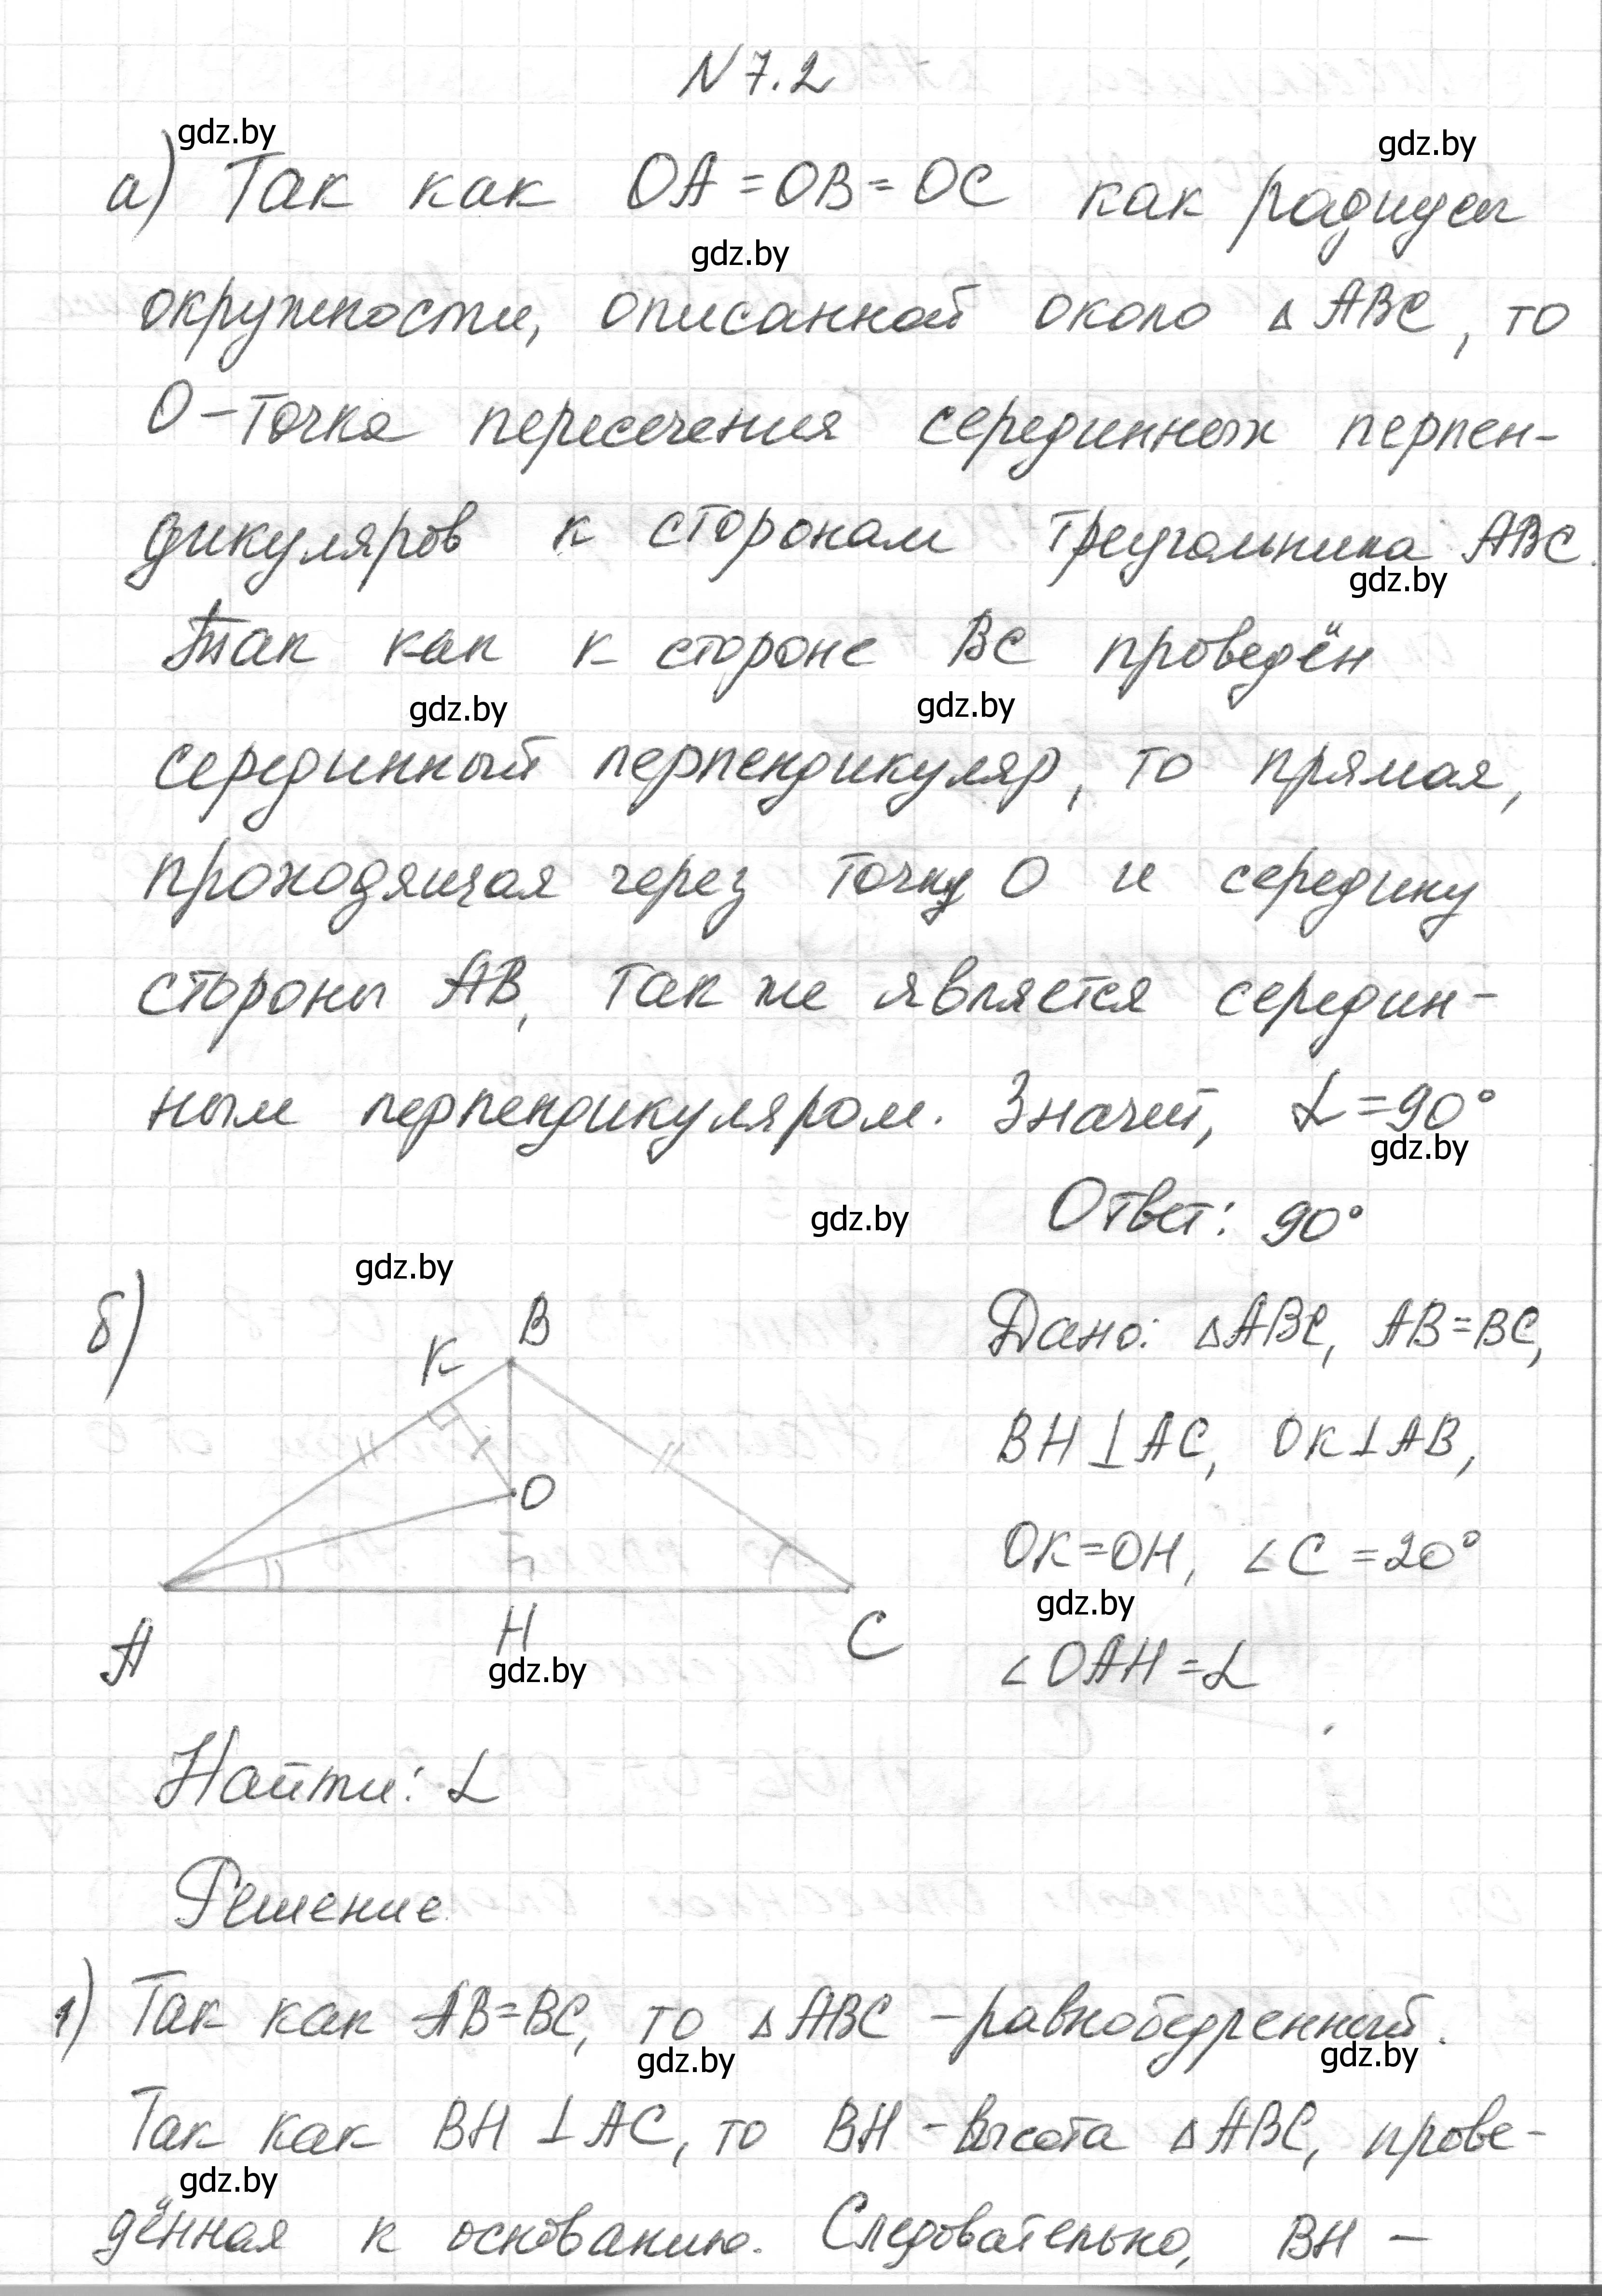 N 7.2
gdz.by
gdz.by
а) Так как OA = OB = OC как радиусы
gdz.by
окружности, описанной около △ ABC, то
O - точка пересечения серединных перпен-
дикуляров к сторонам треугольника ABC.
gdz.by
Так как к стороне BC проведён
gdz.by
gdz.by
серединный перпендикуляр, то прямая,
проходящая через точку O и середину
стороны AB, так же является середин-
ным перпендикуляром. Значит, α = 90°
gdz.by
Ответ: 90°
gdz.by
gdz.by
б)
B
K
O
A
H
C
gdz.by
Дано: △ABC, AB = BC,
BH ⊥ AC, OK ⊥ AB,
OK = OH, ∠C = 20°
gdz.by
∠OAH = α
Найти: α
Решение
1) Так как AB = BC, то △ ABC - равнобедренный.
gdz.by
gdz.by
Так как BH ⊥ AC, то BH - высота △ ABC, прове-
gdz.by
дённая к основанию. Следовательно, BH -